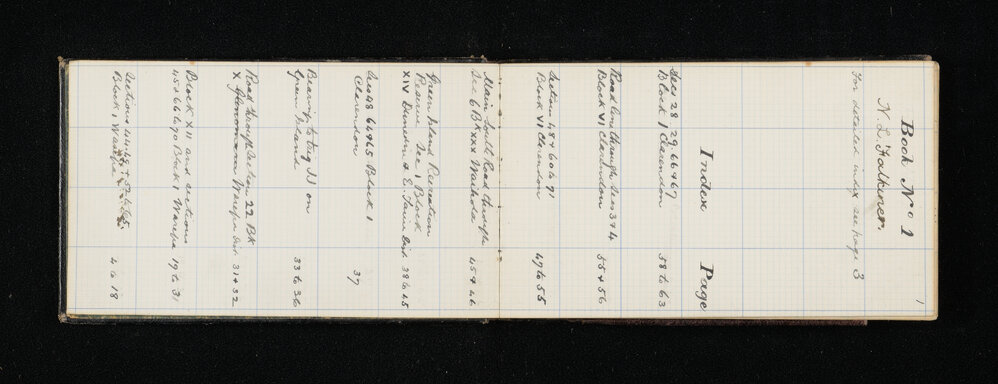 1
Book No 1
N. L. Falkiner.
For detailed index see page 3
Index Page
Secs 28 29 66 & 67
Block I Clarendon 58 to 63
Road line through secs 3 & 4
Block VI Clarendon 55 & 56
Section 48 & 60 & 91
Block VI Clarendon 47 to 55
Main South Road through
Sec 6 Bk XXX Waihola 45 & 46
Green Island Recreation
Reserve Sec 1 Block
XIV Dunedin & E. Taieri Dist 38 to 45
Secs 48 64 & 65 Block I
Clarendon 37
Bearing to trig JJ on
Green Island 33 to 36
Road through Section 22 Bk
X Warepa Dist 31 & 32
Block XII and sections
45 & 66 to 90 Block I Warepa 19 to 31
Sections 44. 49
Block I Warepa 4 to 18